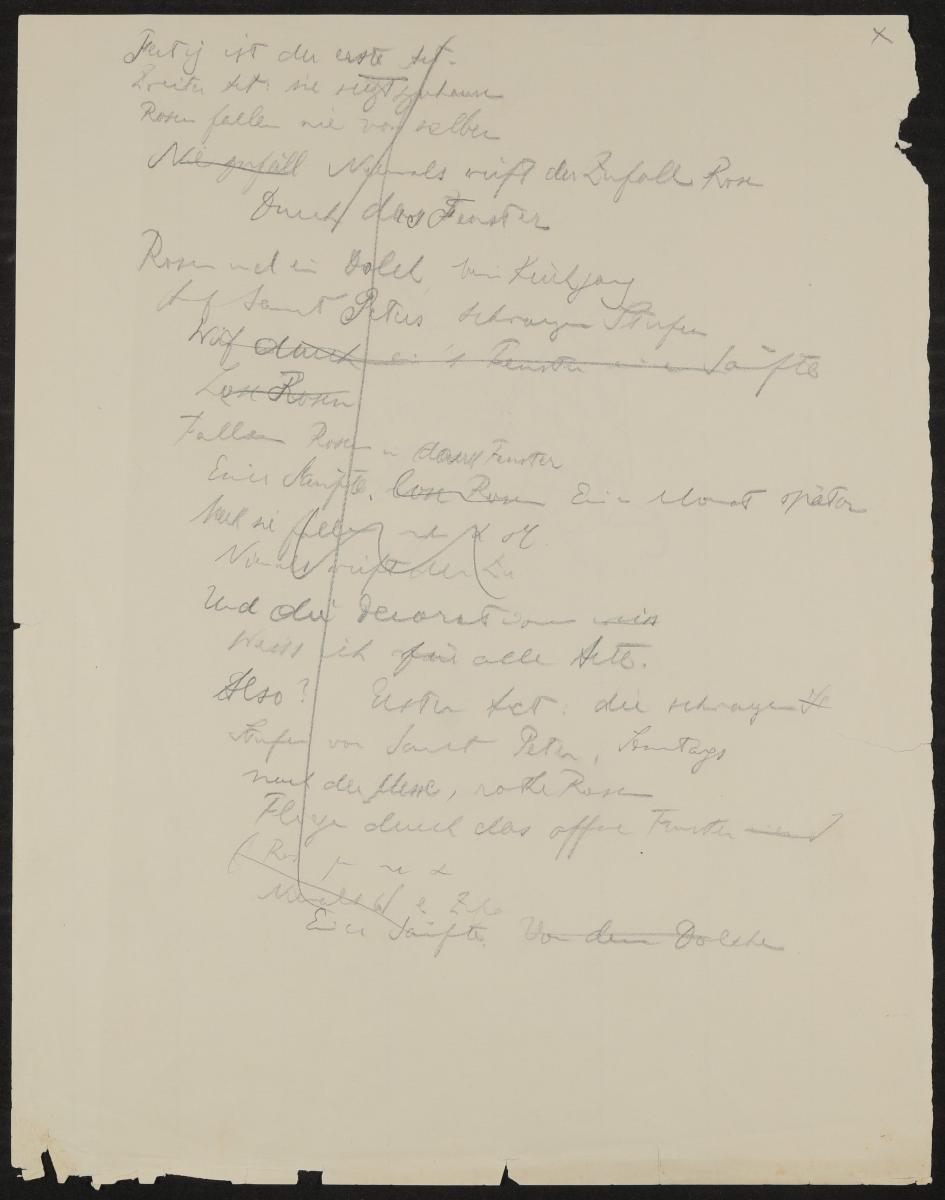 Fertig ist der erste Act.
Zweiter Act: sie
Rosen fallen nie von selber
Nie zufäll Niemals wirft der Zufall Rosen
Durch das Fenster
Rosen und ein Dolch, beim Kirchgang
Auf Sanct Peters schrägen Stufen
Wirf durch ein's Fenster einer Sänfte
Lose Rosen
Fallen Rosen durch Fenster
Einer Sänfte. lose Rosen Ein Monat später
sie fallen
Niemals wirft der Zu
Und die Decoration weiss
Weiss ich für alle Acte.
Also? Erster Act: die schrägen St
Stufen von Sanct Peter, Sonntags
nach der Messe, rothe Rosen
Fliegen durch das offne Fenster einer
Ros
Niemals w Z
Einer Sänfte. Von dem Dolche